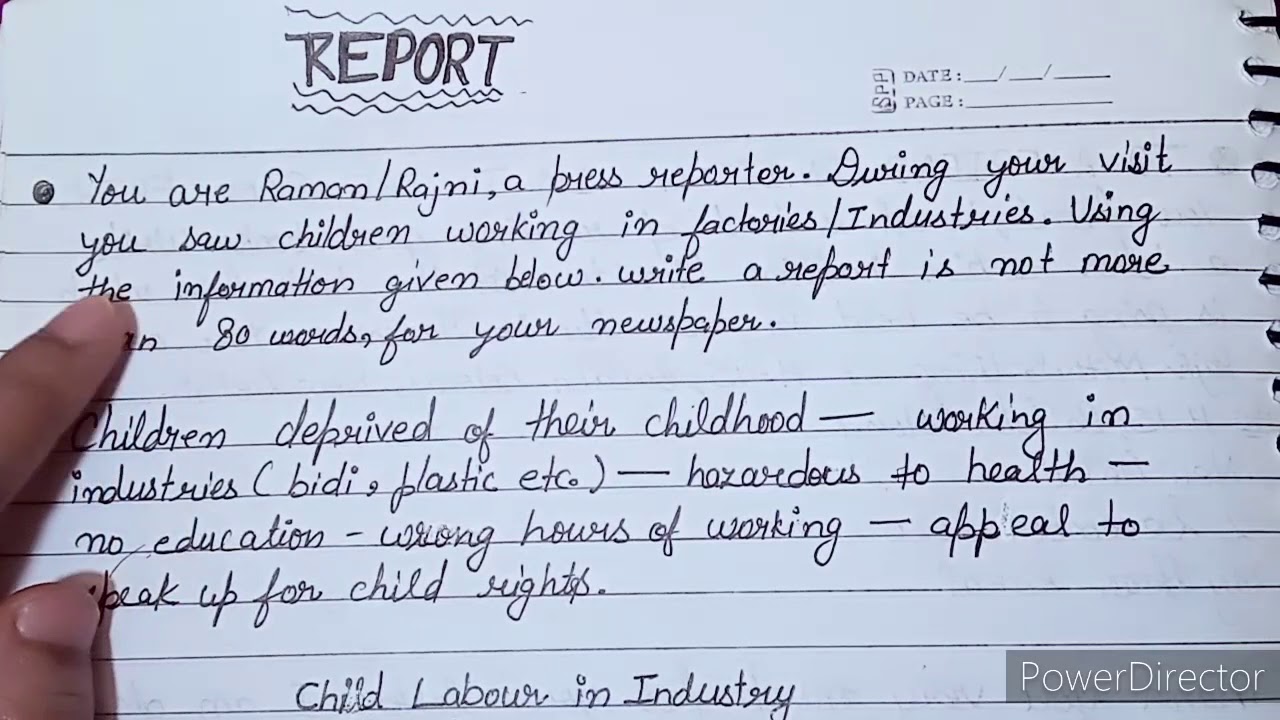 REPORT
SPJ DATE: __/__/____
PAGE: ________
You are Raman/Rajni, a press reporter. During your visit
you saw children working in factories/Industries. Using
the information given below. write a report is not more
an 80 words, for your newspaper.
Children deprived of their childhood — working in
industries (bidi, plastic etc.) — hazardous to health —
no education - wrong hours of working — appeal to
speak up for child rights.
Child Labour in Industry
PowerDirector